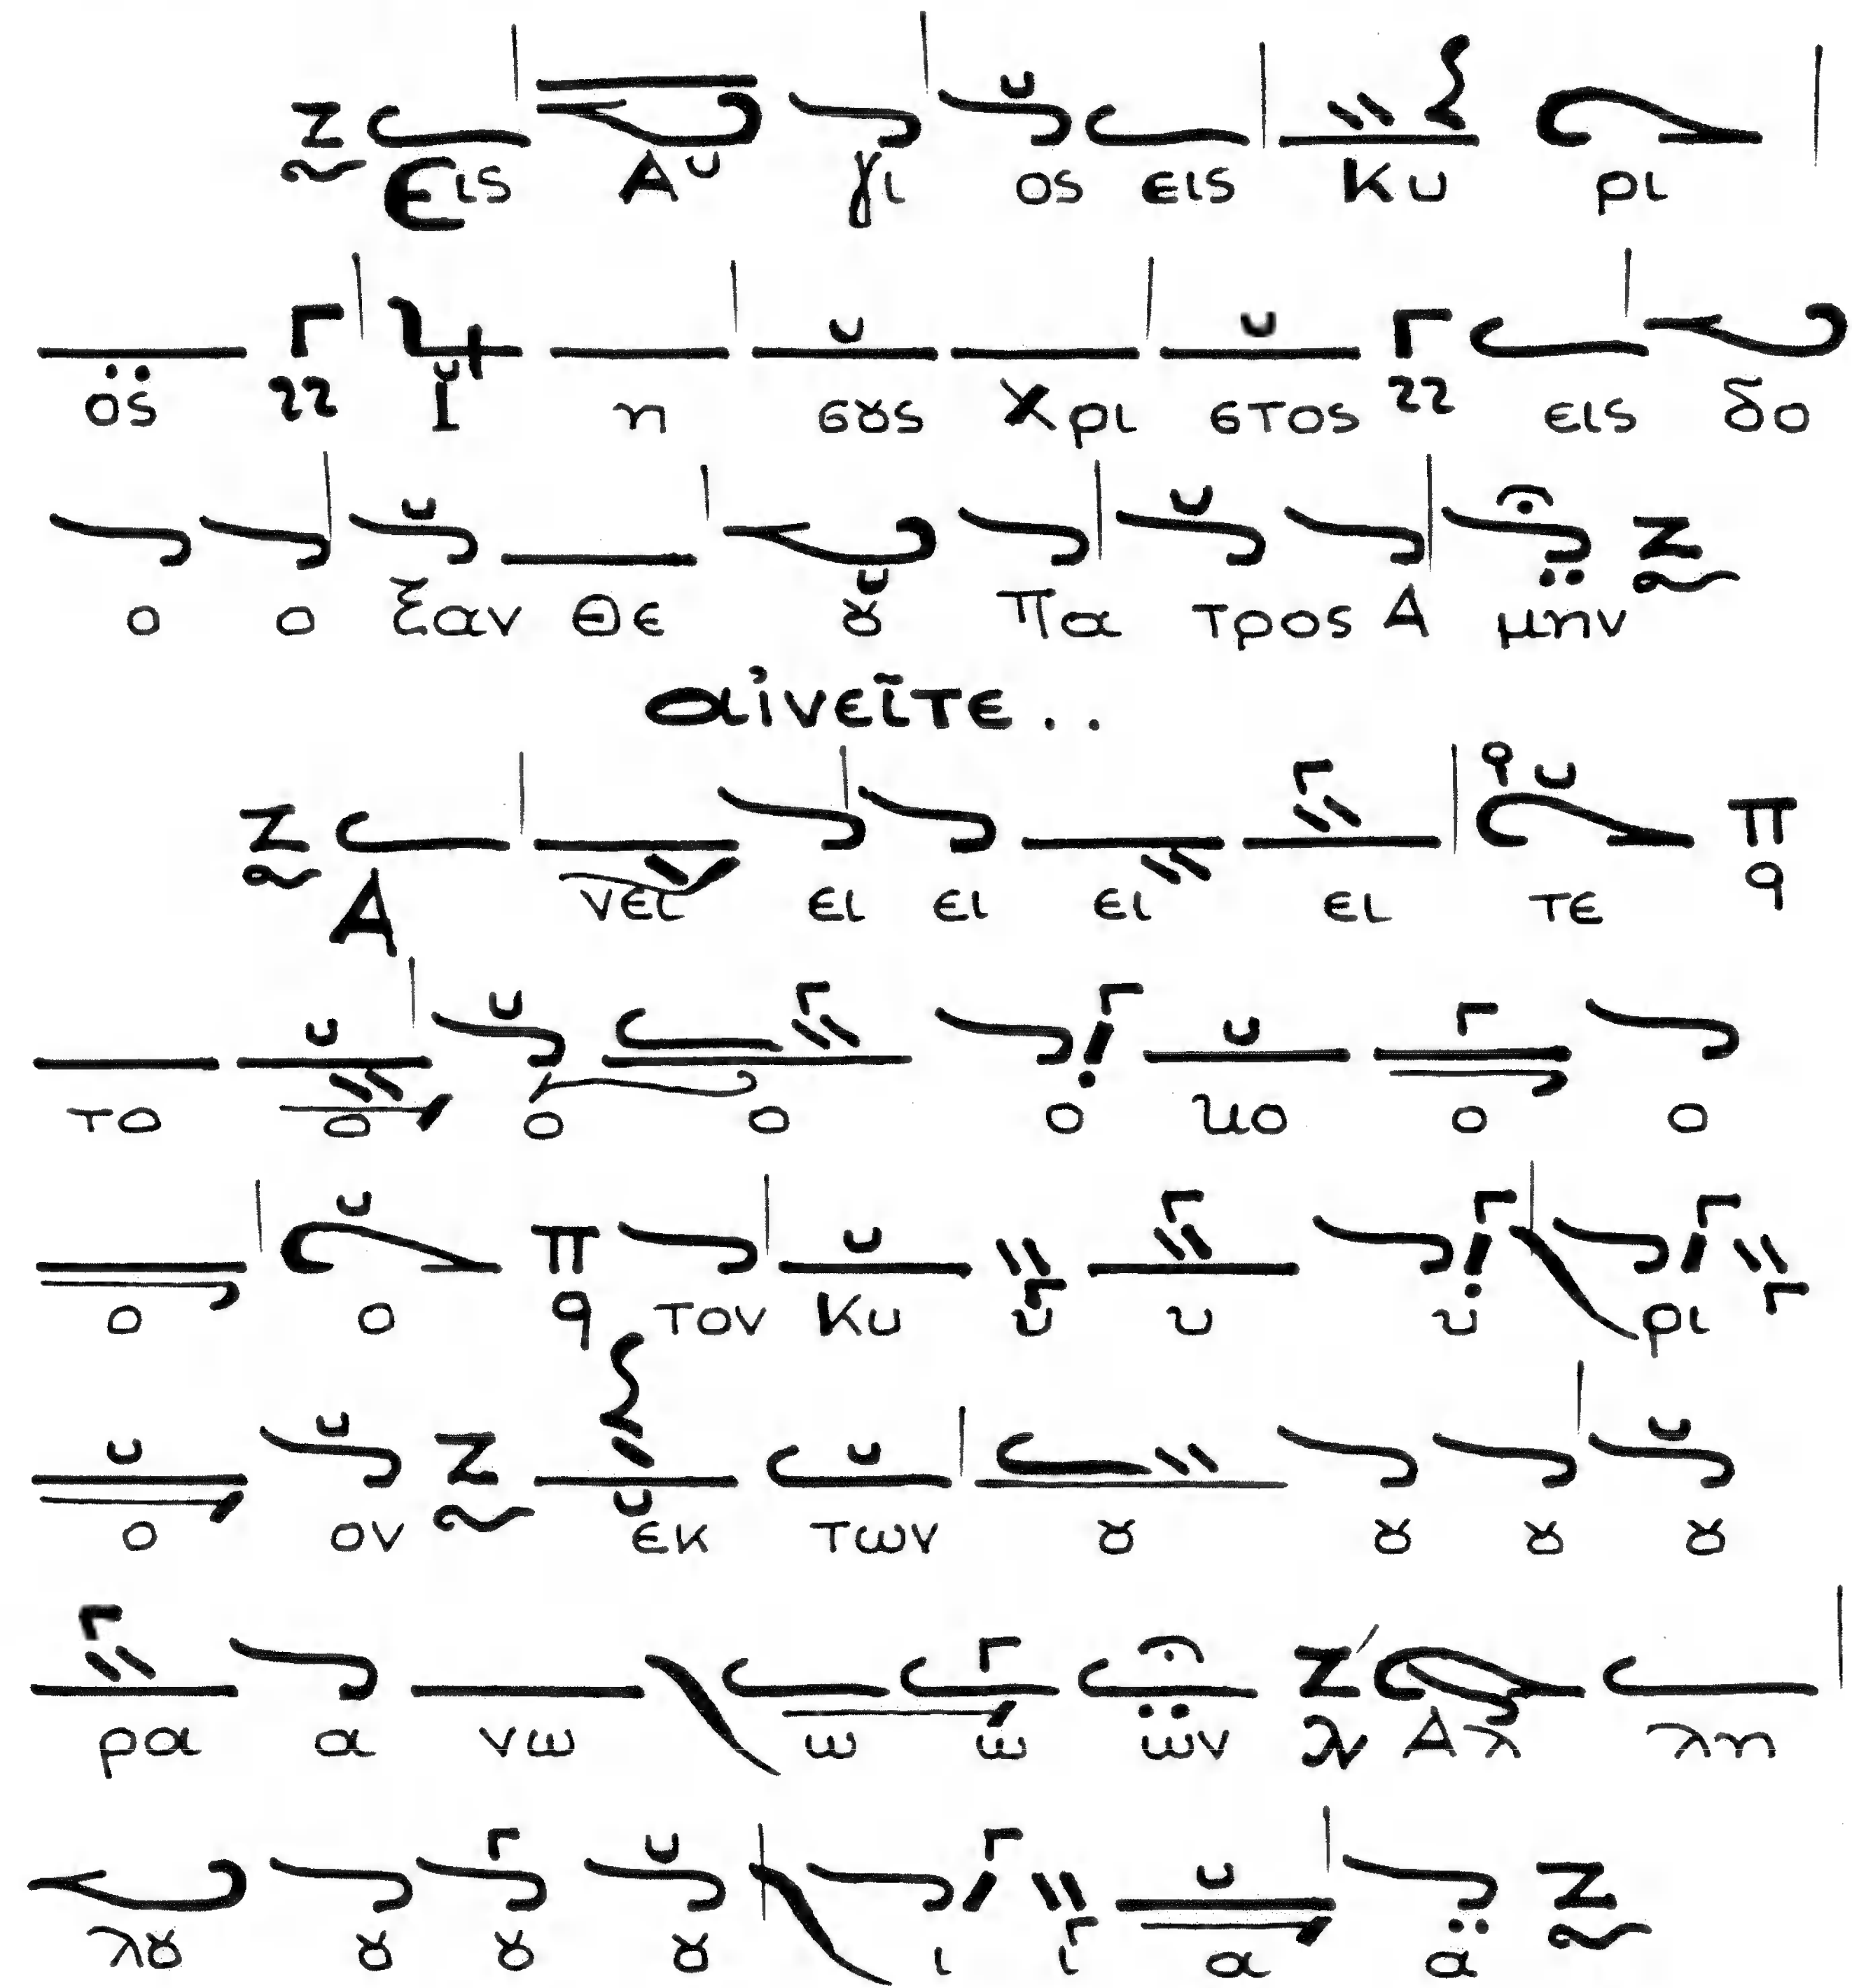 Εις Α γι ος εις Κυ ρι
ος Ι η σȣς Χρι στος εις δο
ο ο ξαν Θε ȣ Πα τρος Α μην
αἰνεῖτε..
Α νει ει ει ει ει τε
το ο ο ο ο ιο ο ο
ο ο τον Κυ υ υ υ ρι
ο ον εκ των ȣ ȣ ȣ ȣ
ρα α νω ω ω ων Αλ λη
λȣ ȣ ȣ ȣ ι ι α α